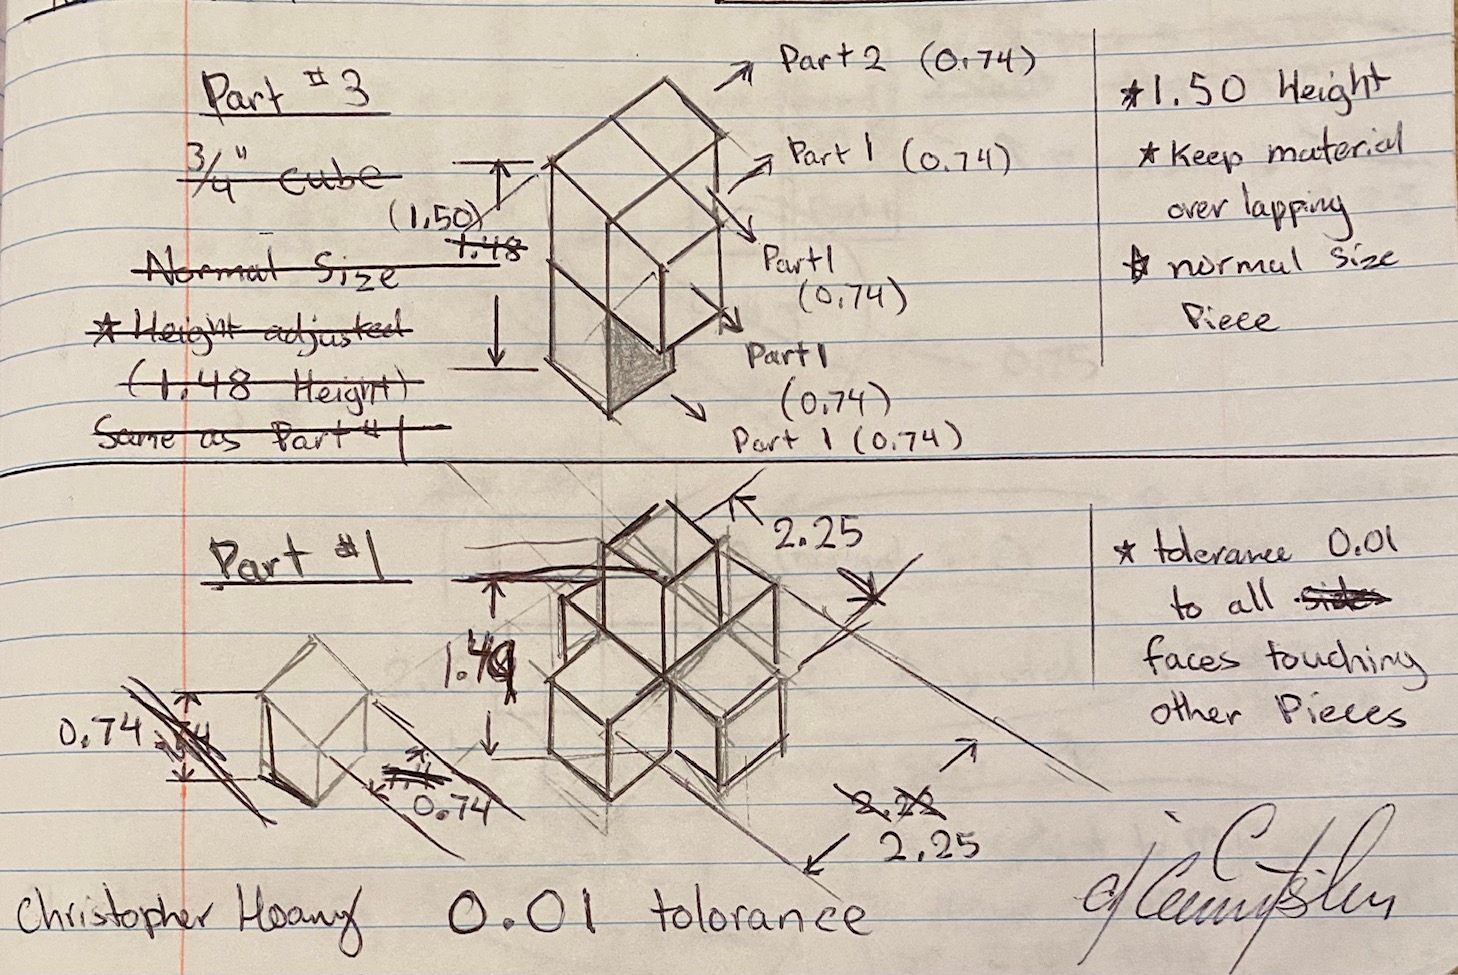 Part #3
3/4" cube
(1.50)
1.48
Normal Size
* Height adjusted
(1.48 Height)
Same as Part #1
Part 2 (0.74)
Part 1 (0.74)
Part 1
(0.74)
Part 1
(0.74)
Part 1 (0.74)
* 1.50 Height
* Keep material
over lapping
* normal size
Piece
Part #1
0.74
0.74
1.49
2.25
2.22
2.25
* tolerance 0.01
to all sides
faces touching
other Pieces
Christopher Hoang 0.01 tolorance